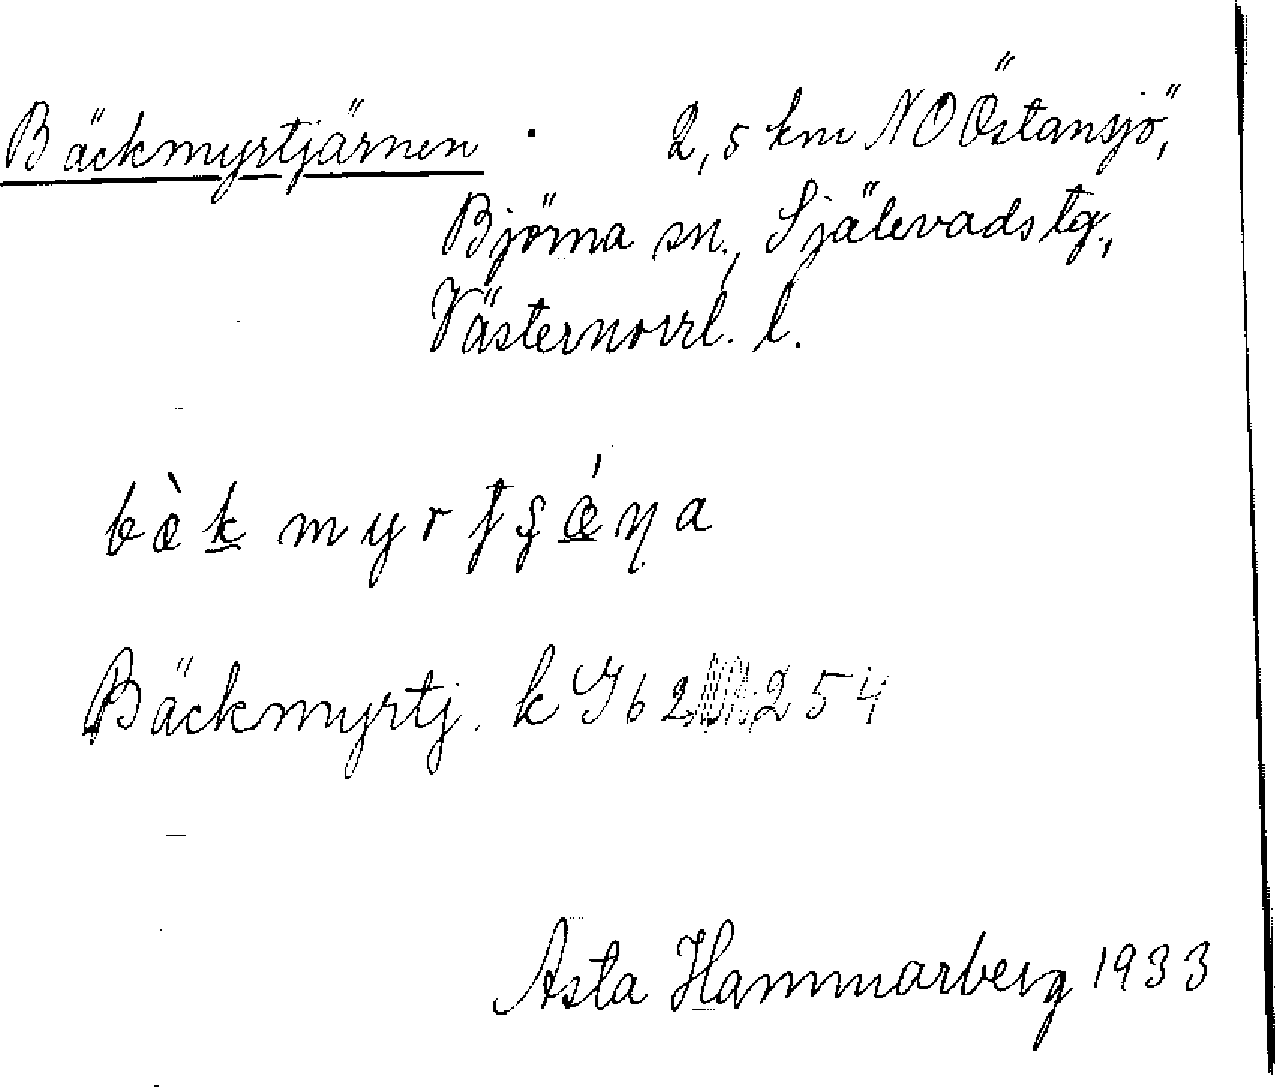 Bäckmyrtjärnen . 2,5 km NO Östansjö,
Björna sn., Själevads tg.,
Västernorrl. l.
Bäckmyrtj. k Y62 254
Asta Hammarberg 1933